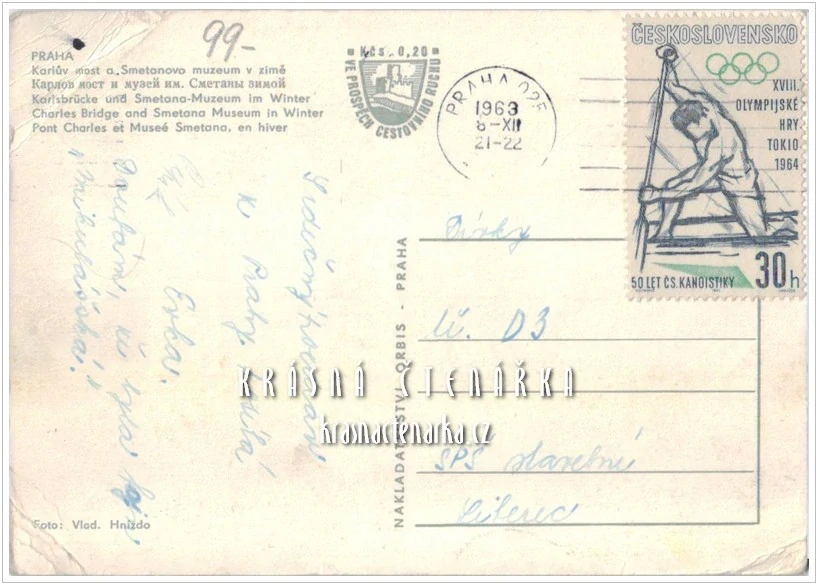 99-
PRAHA
Karlův most a Smetanovo muzeum v zimě
Карлов мост и музей им. Сметаны зимой
Karlsbrücke und Smetana-Muzeum im Winter
Charles Bridge and Smetana Museum in Winter
Pont Charles et Museé Smetana, en hiver
Kčs 0,20
VE PROSPĚCH CESTOVNÍHO RUCHU
PRAHA 025
1963
8-XII
21-22
ČESKOSLOVENSKO
XVIII.
OLYMPIJSKÉ
HRY
TOKIO
1964
50 LET ČS. KANOISTIKY
30h
Srdečný pozdrav
z Prahy
Evka.
Doufám, že byla
"Mikulášská".
Dívky
tř. D3
SPŠ stavební
Liberec
NAKLADATELSTVÍ ORBIS - PRAHA
KRÁSNÁ ČTENÁŘKA
krasnactenarka.cz
Foto: Vlad. Hnízdo